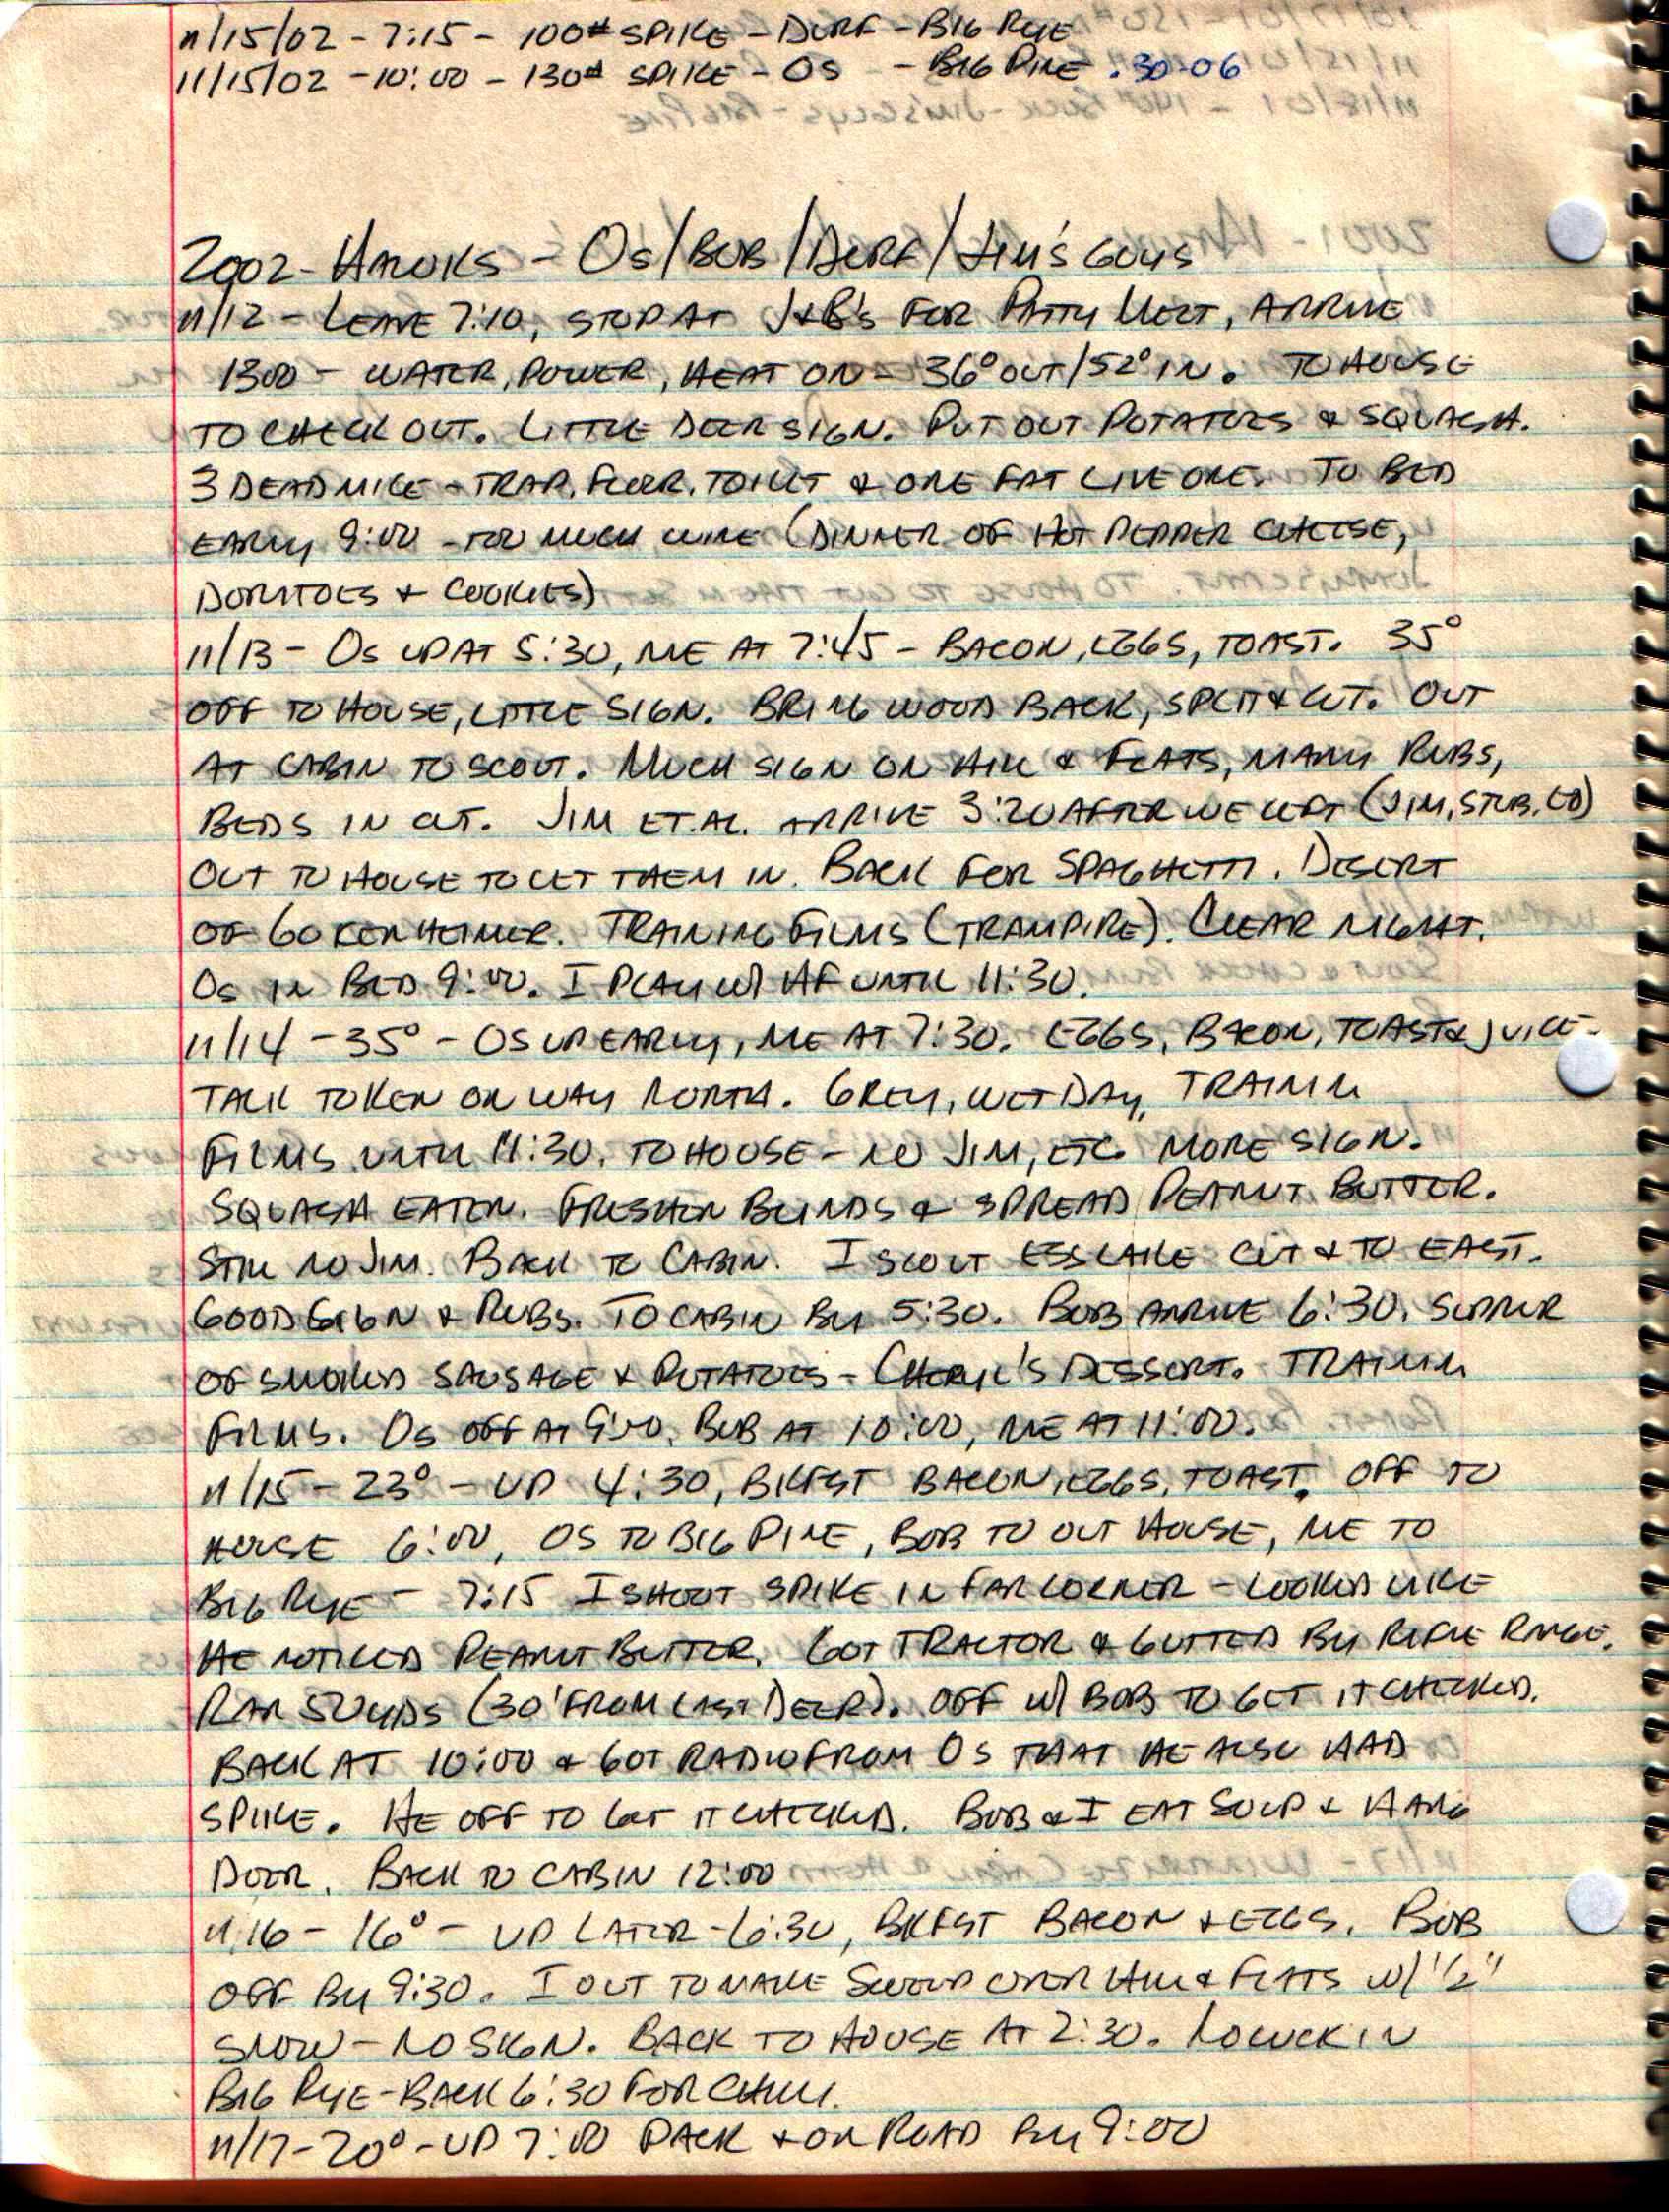 11/15/02 - 7:15 - 100# SPIKE - DERF - BIG RYE
11/15/02 - 10:00 - 130# SPIKE - OS - BIG PINE .30-06
2002 - - OS/BOB/DERF/JIM'S GUYS
11/12 - LEAVE 7:10, STOP AT J&B'S FOR PATTY MELT, ARRIVE
1300 - WATER, POWER, HEAT ON - 36° OUT/52° IN. TO HOUSE
TO CHECK OUT. LITTLE DEER SIGN. PUT OUT POTATOES & SQUASH.
3 DEAD MICE - TRAP, FLOOR, TOILET & ONE FAT LIVE ONE. TO BED
EARLY 9:00 - TOO MUCH WINE (DINNER OF HOT PEPPER CHEESE,
DORITOES & COOKIES)
11/13 - OS UP AT 5:30, ME AT 7:45 - BACON, EGGS, TOAST. 35°
OFF TO HOUSE, LITTLE SIGN. BRING WOOD BACK, SPLIT & CUT. OUT
AT CABIN TO SCOUT. MUCH SIGN ON HILL & FLATS, MANY RUBS,
BEDS IN CUT. JIM ET. AL. ARRIVE 3:20 AFTER WE LEFT (JIM, STUB, ED)
OUT TO HOUSE TO LET THEM IN. BACK FOR SPAGHETTI. DESERT
OF . TRAINING FILMS (TRAMPIRE). CLEAR NIGHT.
OS IN BED 9:00. I PLAY W/ AF UNTIL 11:30.
11/14 - 35° - OS UP EARLY, ME AT 7:30. EGGS, BACON, TOAST & JUICE -
TALK TO KEN ON WAY NORTH. GREY, WET DAY, TRAININ
FILMS UNTIL 11:30. TO HOUSE - NO JIM, ETC. MORE SIGN.
SQUASH EATEN. FRESHEN BLINDS & SPREAD PEANUT BUTTER.
STILL NO JIM. BACK TO CABIN. I SCOUT ESS LAKE CUT & TO EAST.
GOOD SIGN & RUBS. TO CABIN BY 5:30. BOB ARRIVE 6:30. SUPPER
OF SMOKED SAUSAGE & POTATOES - CHERYL'S DESSERT. TRAININ
FILMS. OS OFF AT 9:00, BOB AT 10:00, ME AT 11:00.
11/15 - 23° - UP 4:30, BKFST BACON, EGGS, TOAST. OFF TO
HOUSE 6:00, OS TO BIG PINE, BOB TO OUT HOUSE, ME TO
BIG RYE - 7:15 I SHOOT SPIKE IN FAR CORNER - LOOKED LIKE
HE NOTICED PEANUT BUTTER. GOT TRACTOR & GUTTED BY RIFLE RANGE.
RAN 50 YDS (30' FROM LAST DEER). OFF W/ BOB TO GET IT CHECKED.
BACK AT 10:00 & GOT RADIO FROM OS THAT HE ALSO HAD
SPIKE. HE OFF TO GET IT CHECKED. BOB & I EAT SOUP & HANG
DOOR. BACK TO CABIN 12:00
11/16 - 16° - UP LATER - 6:30, BKFST BACON & EGGS. BOB
OFF BY 9:30. I OUT TO MAKE SWOOP OVER HILL & FLATS W/ 1/2"
SNOW - NO SIGN. BACK TO HOUSE AT 2:30. NO LUCK IN
BIG RYE - BACK 6:30 FOR CHILI.
11/17 - 20° - UP 7:00 PACK & ON ROAD BY 9:00